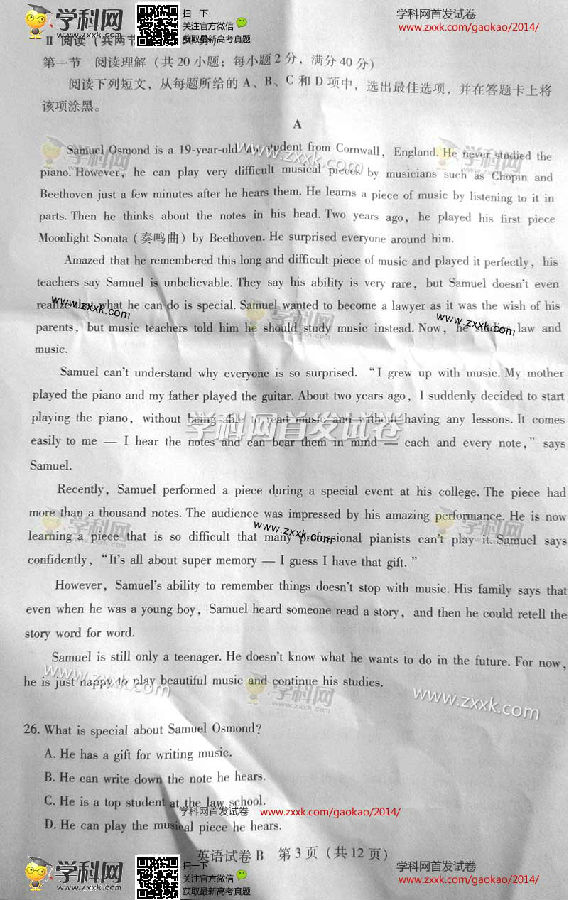 学科网
扫一下
关注官方微信
获取最新高考真题
学科网首发试卷
www.zxxk.com/gaokao/2014/
II 阅读（共两节
第一节 阅读理解（共 20 小题；每小题 2 分，满分 40 分）
阅读下列短文，从每题所给的 A、B、C 和 D 项中，选出最佳选项，并在答题卡上将
该项涂黑。
A
Samuel Osmond is a 19-year-old law student from Cornwall, England. He never studied the
piano. However, he can play very difficult musical pieces by musicians such as Chopin and
Beethoven just a few minutes after he hears them. He learns a piece of music by listening to it in
parts. Then he thinks about the notes in his head. Two years ago, he played his first piece
Moonlight Sonata（奏鸣曲）by Beethoven. He surprised everyone around him.
Amazed that he remembered this long and difficult piece of music and played it perfectly, his
teachers say Samuel is unbelievable. They say his ability is very rare, but Samuel doesn't even
realize that what he can do is special. Samuel wanted to become a lawyer as it was the wish of his
parents, but music teachers told him he should study music instead. Now, he studies law and
music.
Samuel can't understand why everyone is so surprised. "I grew up with music. My mother
played the piano and my father played the guitar. About two years ago, I suddenly decided to start
playing the piano, without being able to read music and without having any lessons. It comes
easily to me — I hear the notes and can bear them in mind — each and every note," says
Samuel.
Recently, Samuel performed a piece during a special event at his college. The piece had
more than a thousand notes. The audience was impressed by his amazing performance. He is now
learning a piece that is so difficult that many professional pianists can't play it. Samuel says
confidently, "It's all about super memory — I guess I have that gift."
However, Samuel's ability to remember things doesn't stop with music. His family says that
even when he was a young boy, Samuel heard someone read a story, and then he could retell the
story word for word.
Samuel is still only a teenager. He doesn't know what he wants to do in the future. For now,
he is just happy to play beautiful music and continue his studies.
26. What is special about Samuel Osmond?
A. He has a gift for writing music.
B. He can write down the note he hears.
C. He is a top student at the law school.
D. He can play the musical piece he hears.
学科网首发试卷 www.zxxk.com/gaokao/2014/
英语试卷 B 第 3 页（共 12 页）
学科网
扫一下
关注官方微信
获取最新高考真题
学科网首发试卷
www.zxxk.com/gaokao/2014/